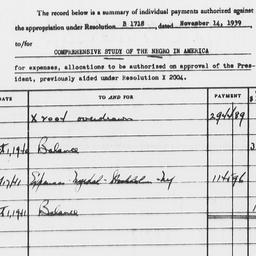 The record below is a summary of individual payments authorized against
the appropriation under Resolution B 1718, dated November 14, 1939
to/for
COMPREHENSIVE STUDY OF THE NEGRO IN AMERICA
for expenses, allocations to be authorized on approval of the Pres-
ident, previously aided under Resolution X 2004.
DATE TO AND FOR PAYMENT
X 2004 overdrawn 2944 89
Balance
Expenses Myrdal - Stockholm - 1146 96
1, 1941 Balance